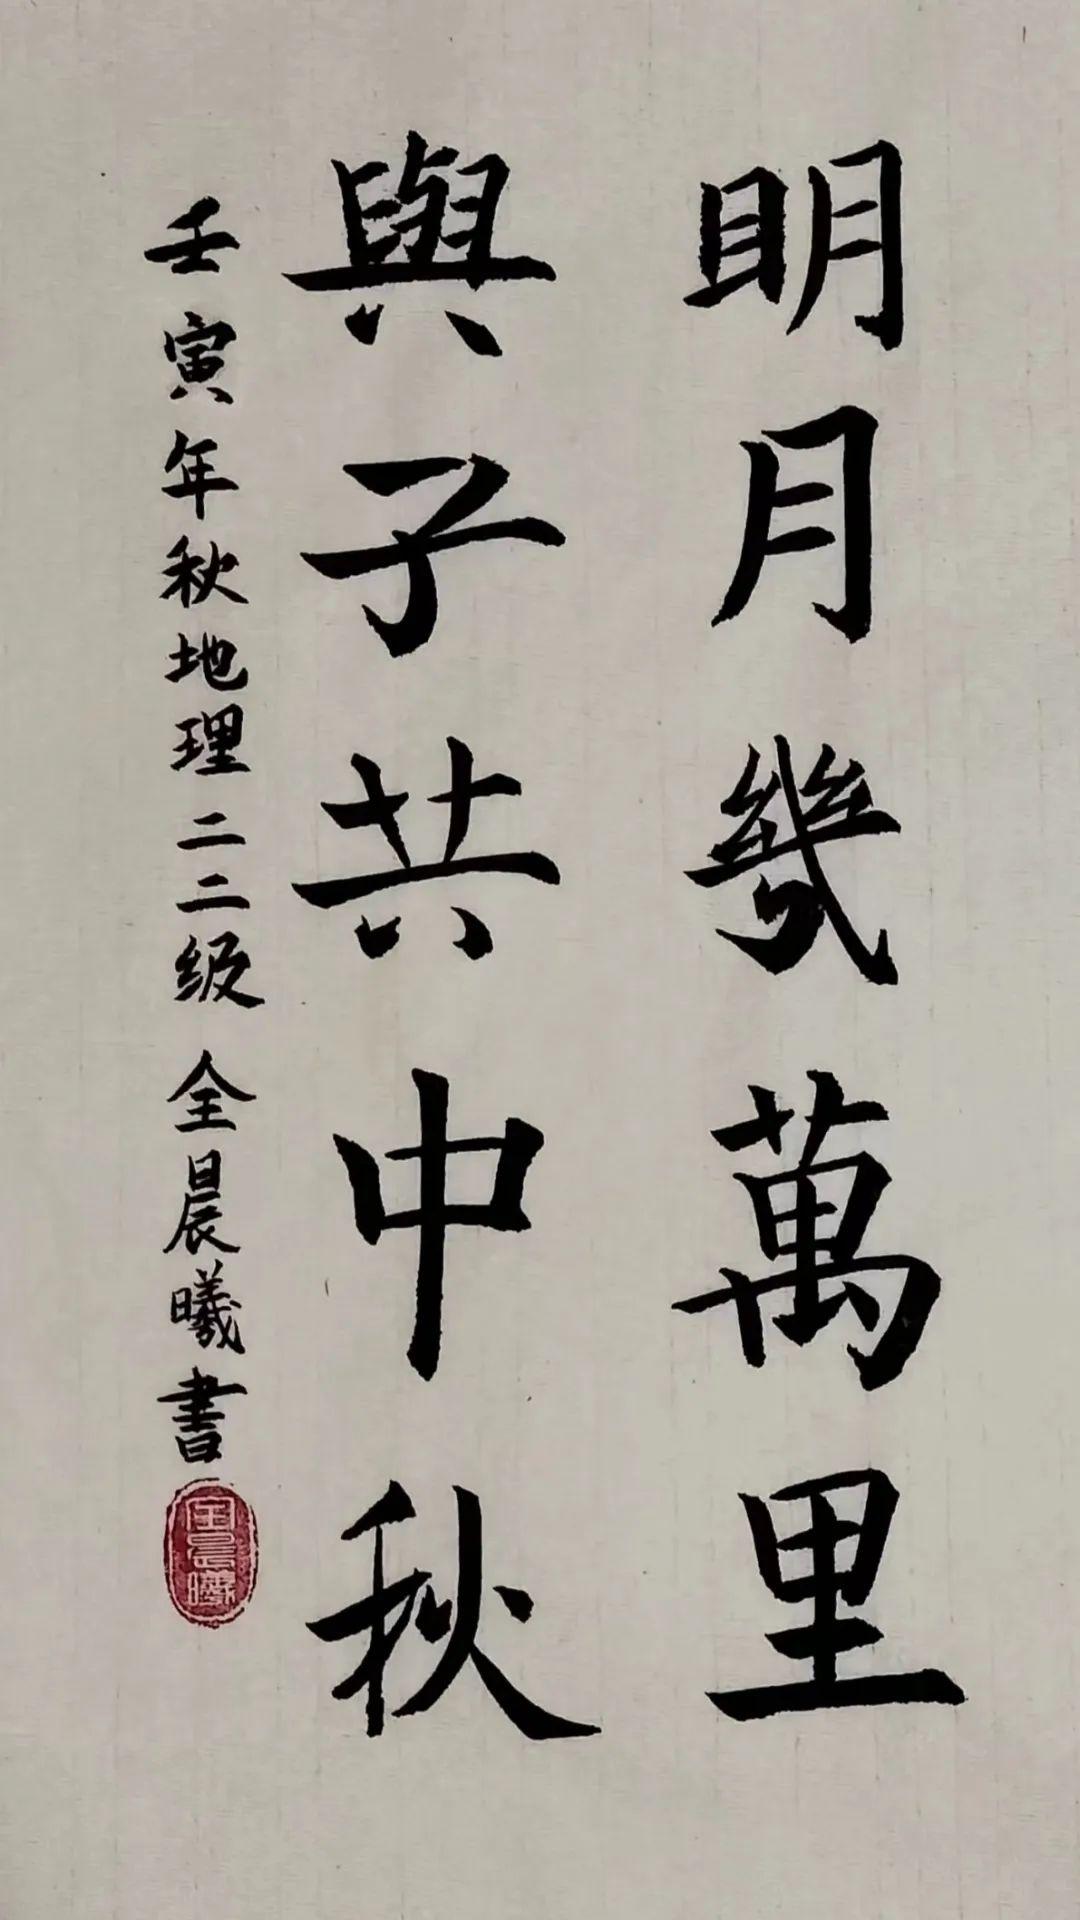 明月幾萬里
與子共中秋
壬寅年秋地理二二级 全晨曦書
全晨曦